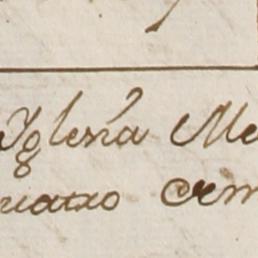 Iglesia Me
uatro Cem